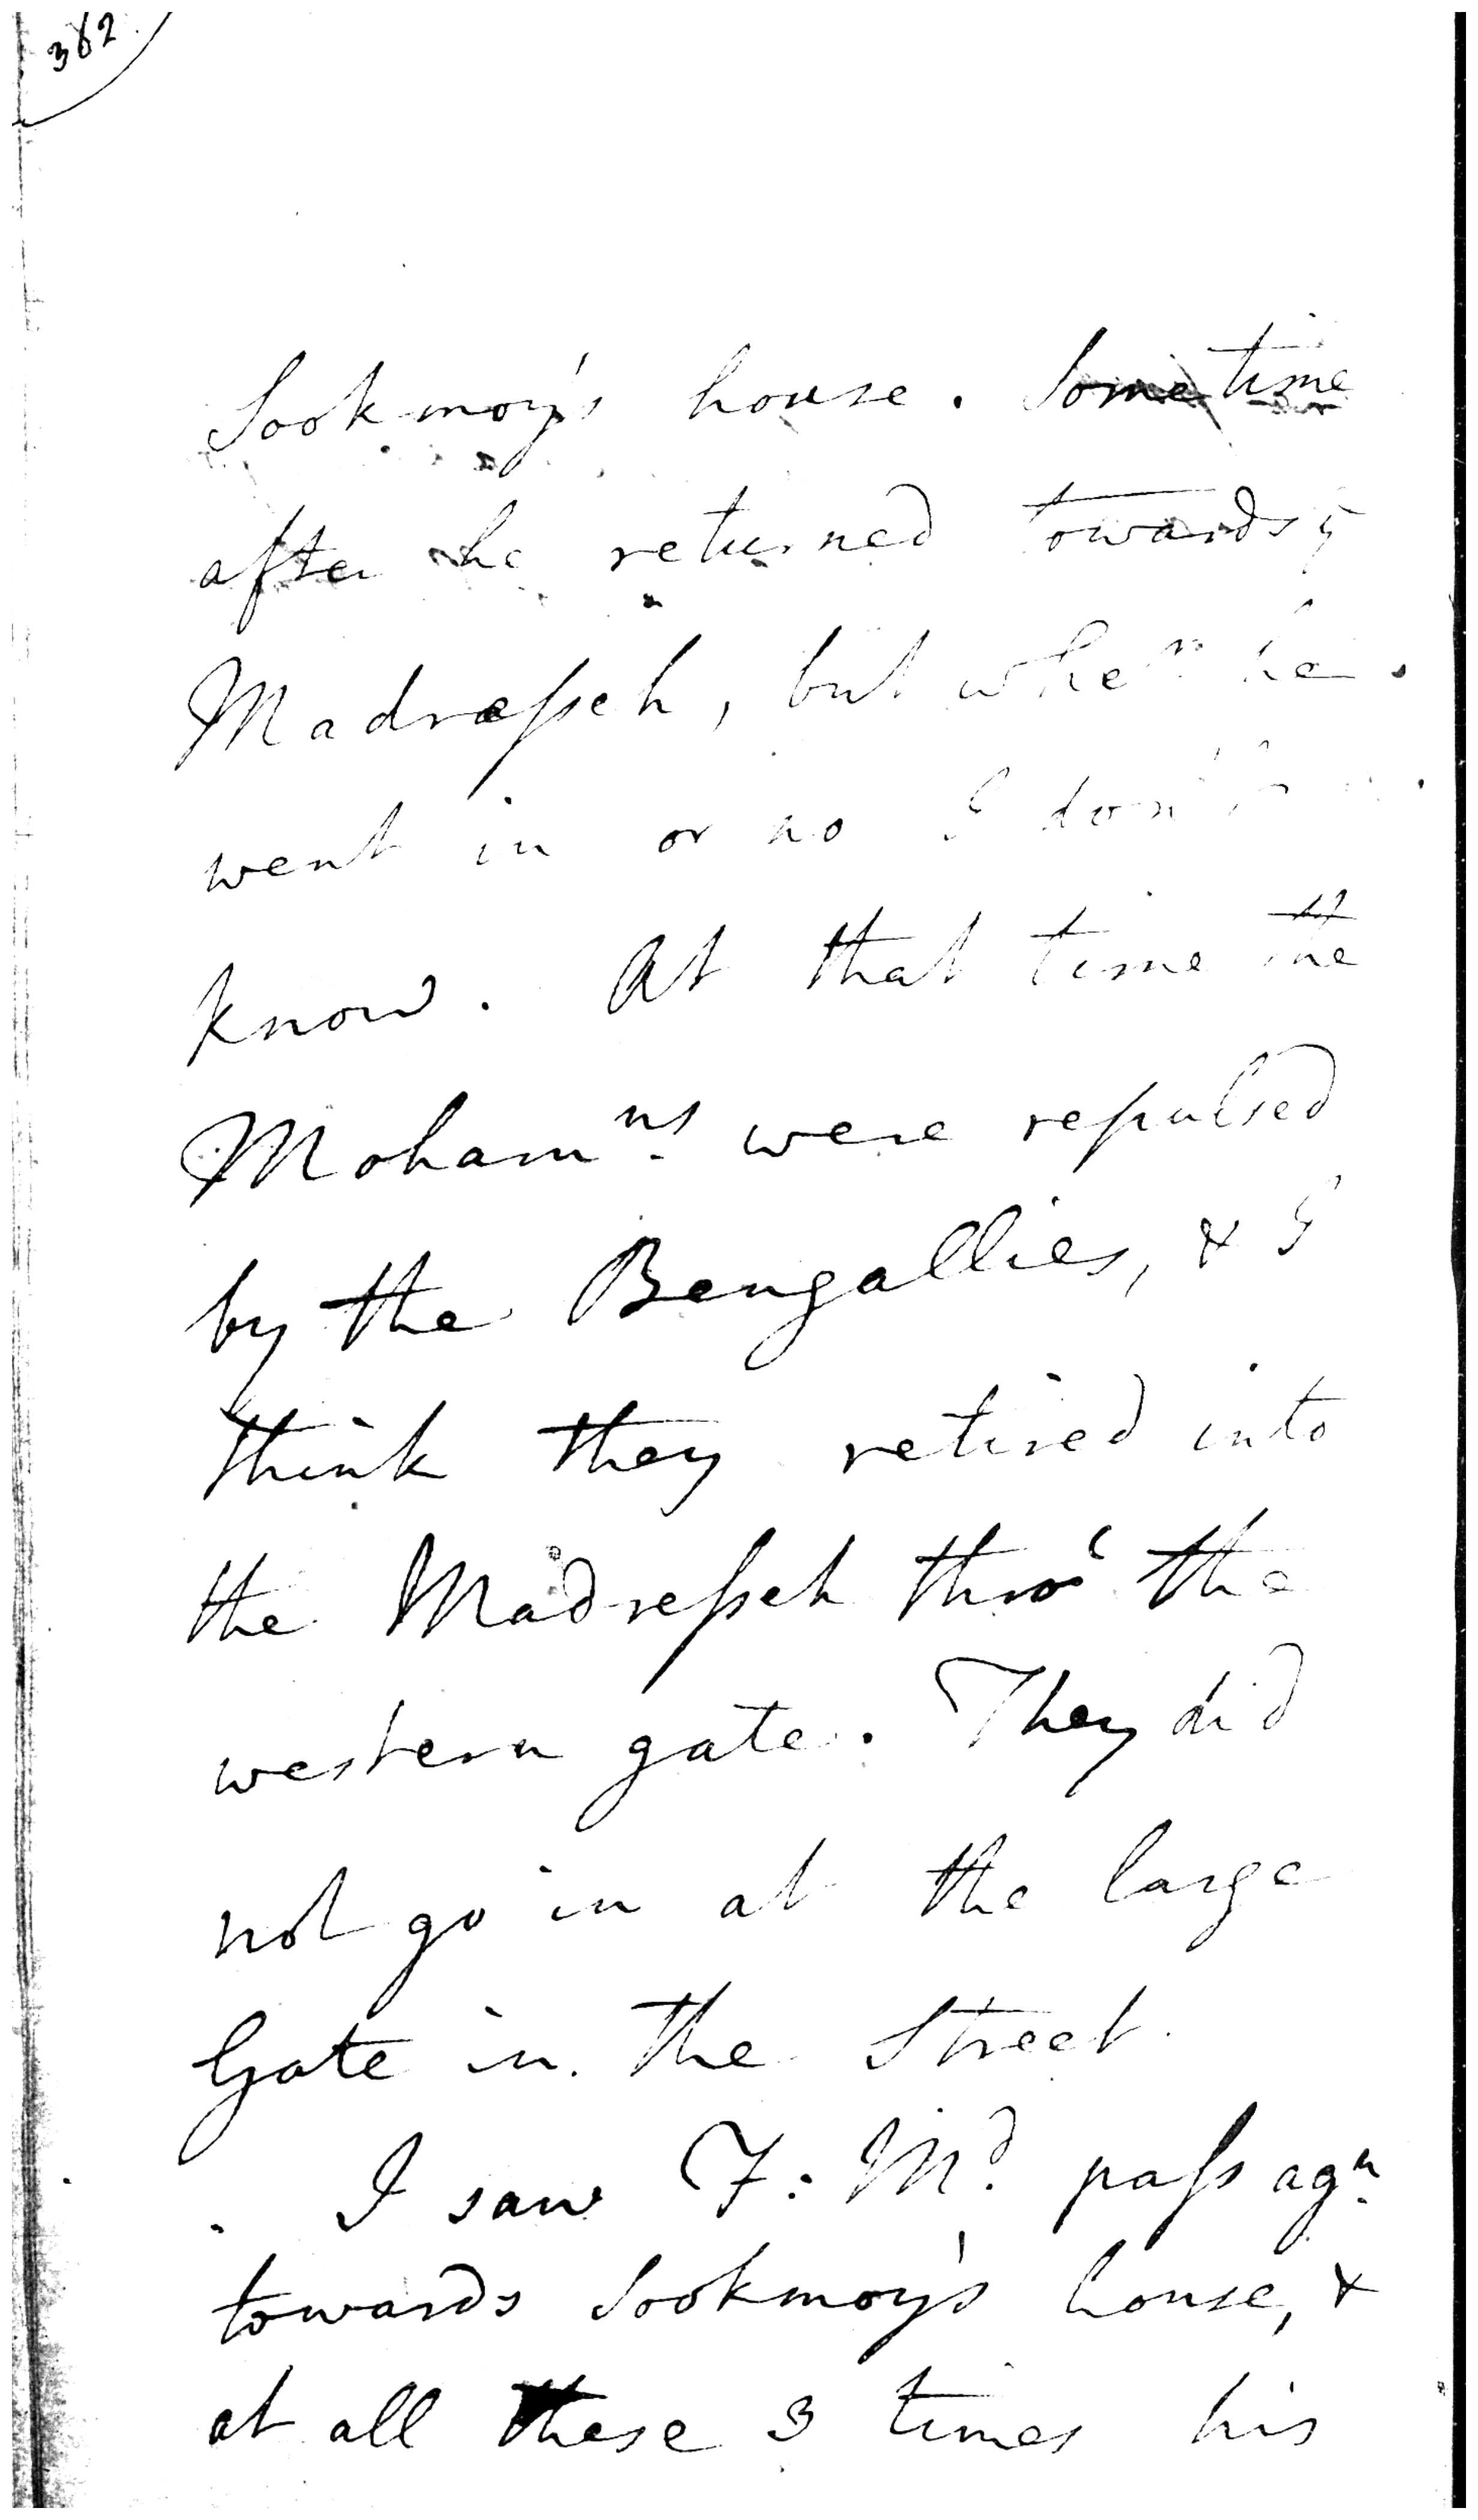 362
Sookmoy's house. Sometime
after he returned towards y
Madrasseh, but whe^r he
went in or no I don't
know. At that time the
Moham^ns were repulsed
by the Bengallies, & I
think they retired into
the Madresseh thro' the
western gate. They did
not go in at the large
Gate in the Street.
I saw F: M^d. pass ag^n
towards Sookmoy's house, &
at all these 3 times his